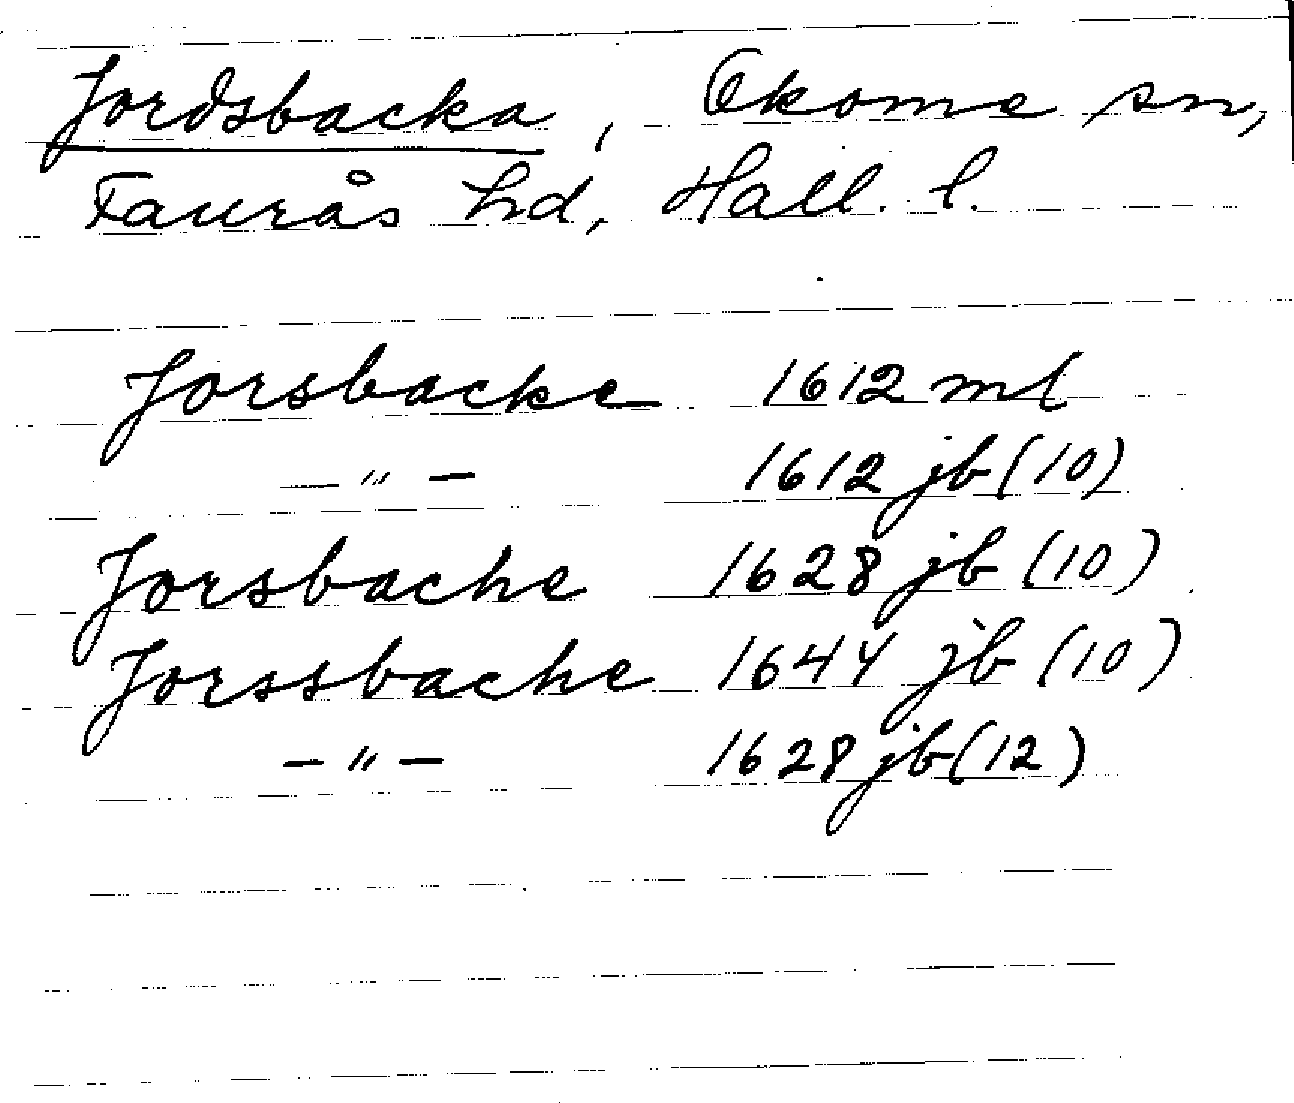 Jordsbacka, Okome sn,
Faurås hd, Hall. l.
Jorsbacke 1612 ml
— " — 1612 jb (10)
Jorsbache 1628 jb (10)
Jorssbache 1644 jb (10)
— " — 1628 jb (12)